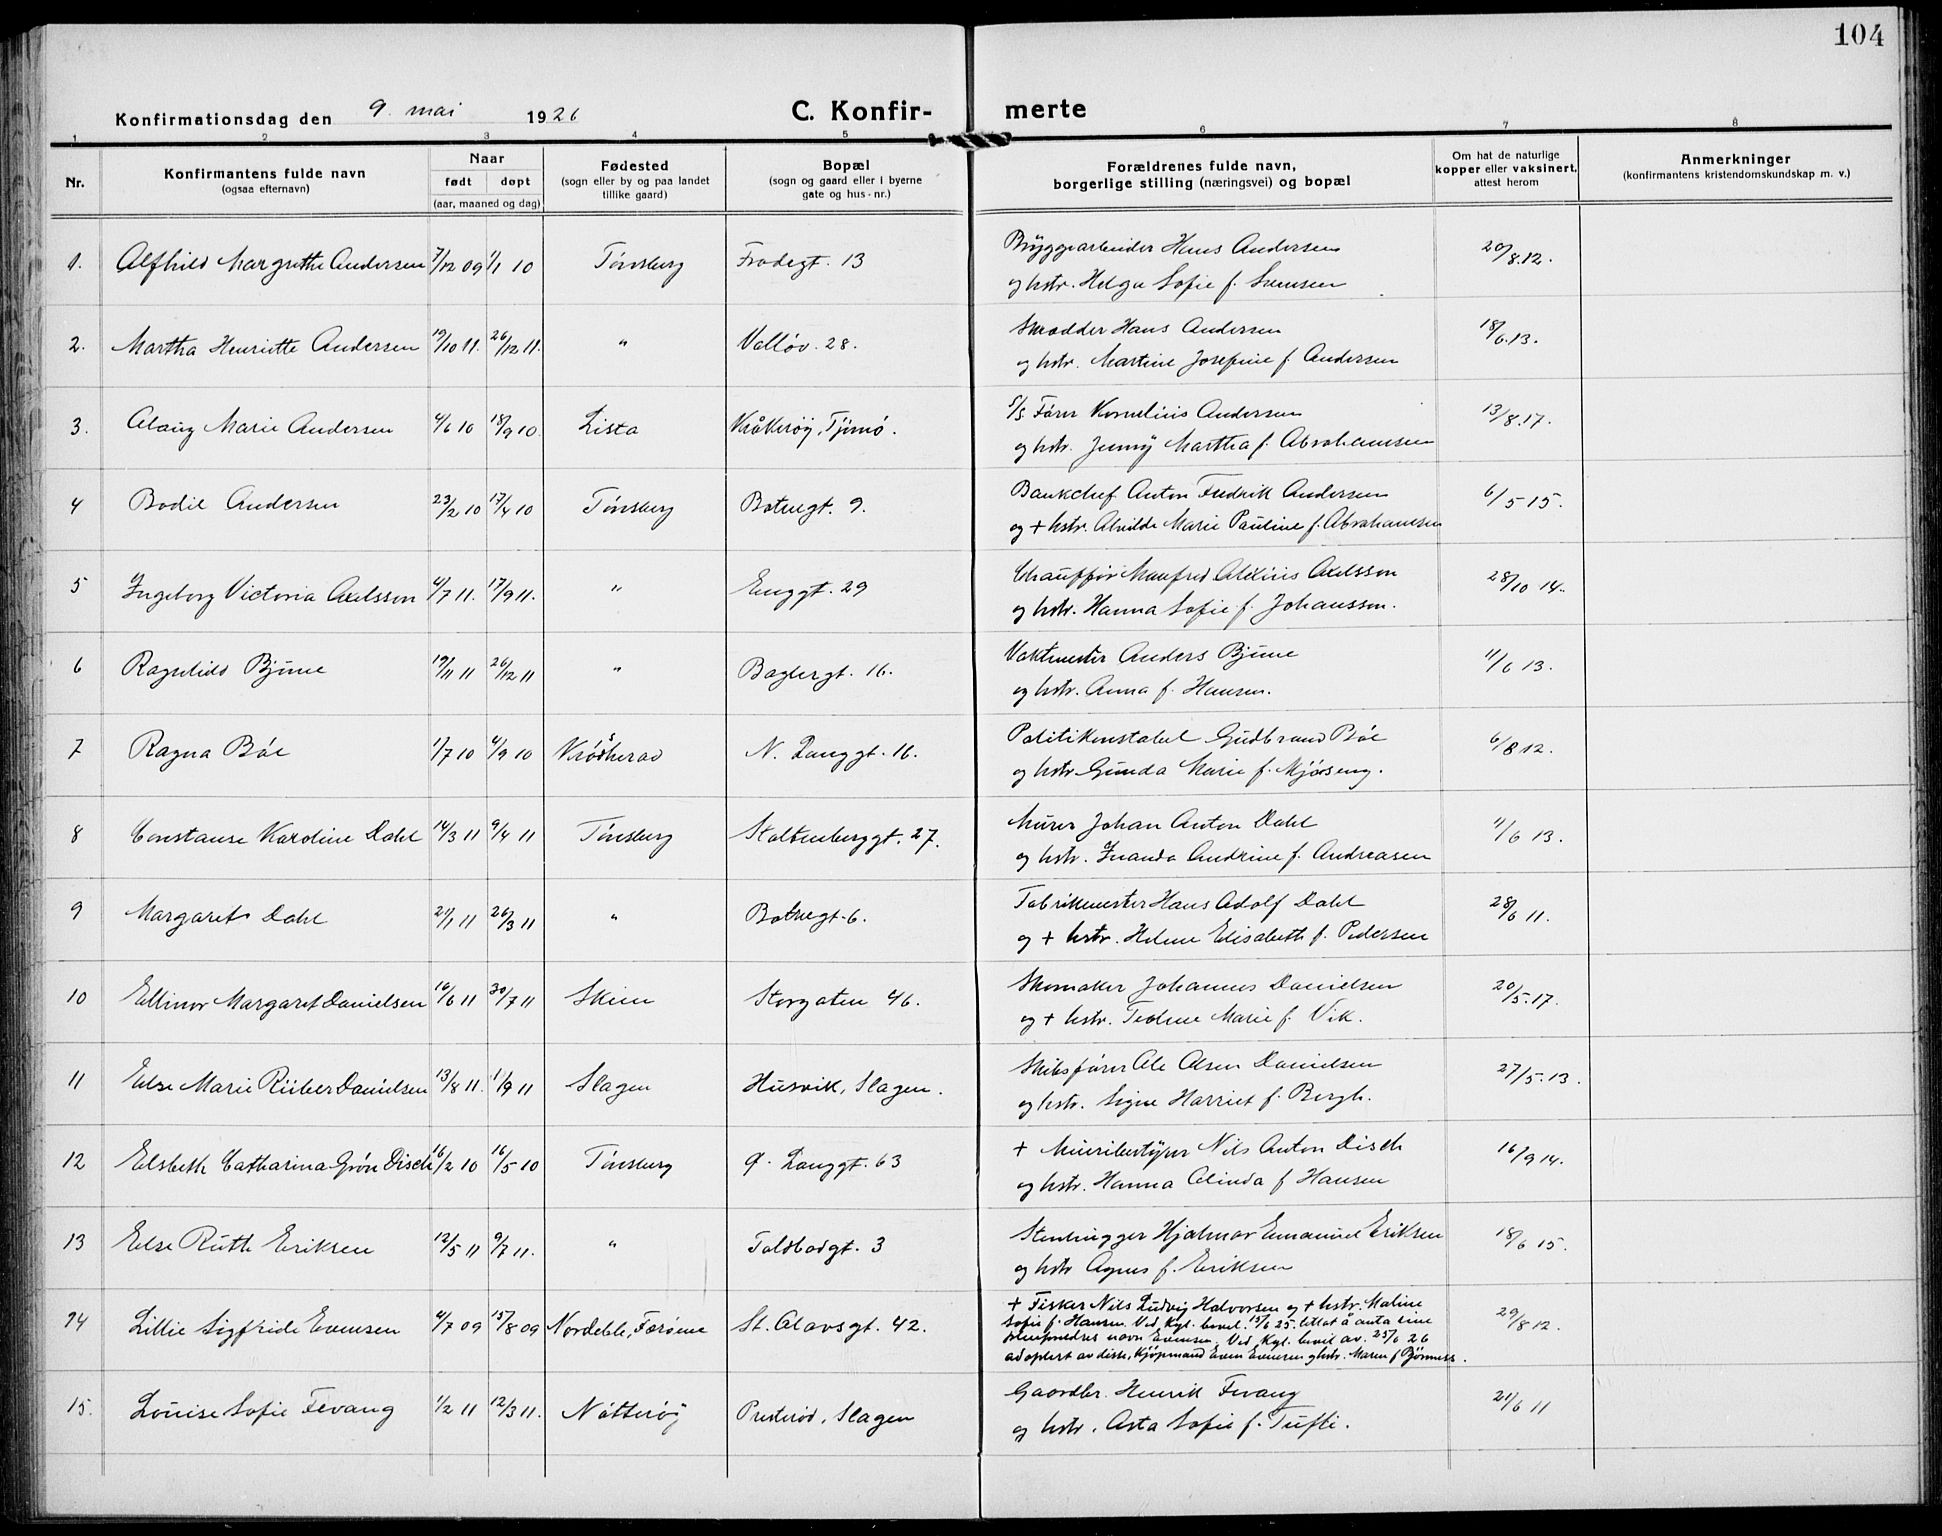 104
Konfirmationsdag den 9. mai 1926
C. Konfir- merte
1 2 3 4 5 6 7 8
Nr. | Konfirmantens fulde navn (ogsaa efternavn) | Naar født døpt (aar, maaned og dag) | Fødested (sogn eller by og paa landet tillike gaard) | Bopæl (sogn og gaard eller i byerne gate og hus-nr.) | Forældrenes fulde navn, borgerlige stilling (næringsvei) og bopæl | Om hat de naturlige kopper eller vaksinert, attest herom | Anmerkninger (konfirmantens kristendomskundskap m. v.)
1. Alfhild Margrethe Andersen 7/12 09 1/1 10 Tønsberg Frodegt. 13 Bryggearbeider Hans Andersen 20/8.12.
og hstr. Helga Sofie f.
2. Martha Henriette Andersen 19/10 11. 26/12 11. " Valløv. 28. Skrædder Hans Andersen 18/6.13.
og hstr. Martine Josefine f. Andersen
3. Alaug Marie Andersen 4/6 10 18/9 10. Lista Kråkerøy, Tjømø. S/S. Fører Kornelius Andersen 13/8.17.
og hstr. Jenny Martha f. Abrahamsen
4 Bodil Andersen 23/2 10 17/4 10 Tønsberg Botnegt. 9. Bankchef Anton Fredrik Andersen 6/5 15.
og + hstr. Alvilde Marie Pauline f. Abrahamsen
5 Ingeborg Victoria Axelsson 4/7 11. 17/9 11. " Enggt. 29 Chauffør Manfred Alexius Axelsson 28/10 14.
og hstr. Hanna Sofie f. Johansson.
6 Ragnhild Bjune 19/11 11 26/12 11 " Baglergt. 16. Vaktmester Anders Bjune 11/6 13.
og hstr. Anna f. Hansen.
7 Ragna Bøe 1/7 10 4/9 10 Krødsherad N. Langgt. 16. Politikonstabel Gudbrand Bøe 6/8 12.
og hstr Gunda Marie f. Mjøseng.
8 Constanse Karoline Dahl 14/3 11 9/4 11 Tønsberg Stoltenberggt. 27. Murer Johan Anton Dahl 11/6 13.
og hstr. Inanda Andrine f. Andreasen
9 Margareth Dahl 21/1 11 26/3 11 " Botnegt. 6. Fabrikmester Hans Adolf Dahl 28/6 11.
og + hstr. Helene Elisabeth f. Pedersen
10 Ellinor Margaret Danielsen 16/6 11 30/7 11 Skien Storgaten 46. Skomaker Johannes Danielsen 20/5.17.
og + hstr. Teoline Marie f. Vik.
11 Else Marie Riiber Danielsen 13/8 11. 1/9 11 Slagen Husvik, Slagen. Skibsfører Ole Olsen Danielsen 27/5.13.
og hstr. Signe Harriet f. Bergh.
12 Elsbeth Catharina Grøn Disch 16/2 10 16/5 10 Tønsberg Ø. Langgt. 63 + Murerbestyrer Nils Anton Disch 16/9 14.
og hstr. Hanna Alinda f Hansen
13 Else Ruth Eriksen 12/5 11 9/7 11. " Toldbodgt. 3 Stenhugger Hjalmar Emanuel Eriksen 18/6 15.
og hstr Agnes f. Eriksen
14 Lillie Sigfride Evensen 4/7 09 15/8 09 St. Olavsgt. 42. + Fisker Nils Ludvig Halvorsen og + hstr. Maline 29/8 12.
Sofie f. Hansen. Ved Kgl. bevil. 15/6 25. tillat å anta sine
pleieforeldres navn Evensen. Ved Kgl. bevil av 25/6 26
adoptert av disse, Kjøpmand Even Evensen og hstr. Maren f Bjønness.
15. Louise Sofie Fevang 1/2 11 12/3 11. Nøtterøy Presterød, Slagen Gaardbr. Henrik Fevang 21/6 11
og hstr. Asta Sofie f. Tufte.